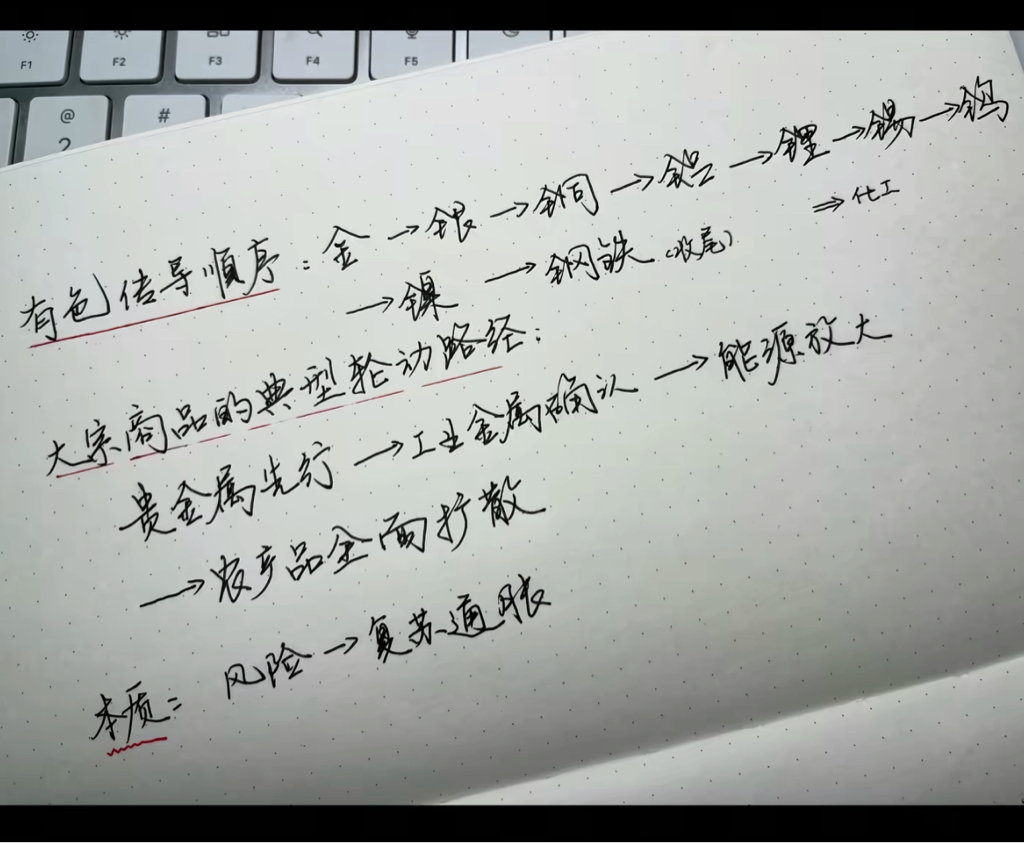 F1 F2 F3 F4 F5
@ #
2
有色传导顺序：金→银→铜→铝→锂→锡→钨
⇒化工
→镍 →钢铁（收尾）
大宗商品的典型轮动路经：
贵金属先行→工业金属确认→能源放大
→农产品全面扩散
本质：风险→复苏通胀